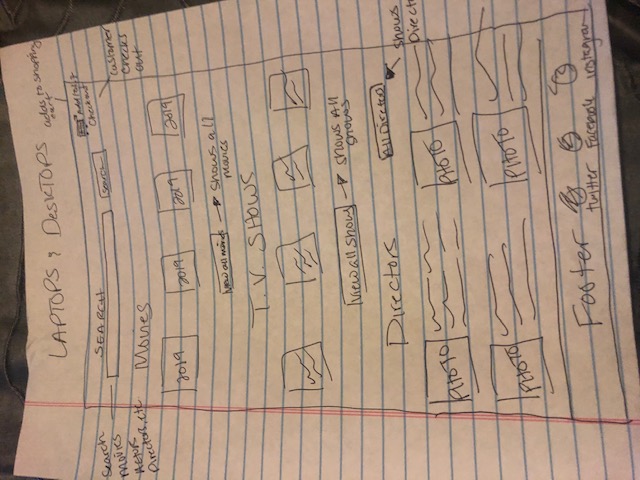 LAPTOPS & DESKTOPS
adds to shopping
cart
Checkout
customer
checks
out
Search
Movies
Directors, etc
SEARCH
Search
Movies
2019
2019
2019
2019
View all movies
shows all
movies
T.V. SHOWS
View all shows
shows All
shows
Directors
All Directors
shows
PHOTO
PHOTO
PHOTO
PHOTO
Footer
twitter
Facebook
instagram